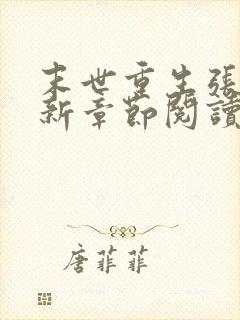 末世重生張
新章節閱讀
唐菲菲